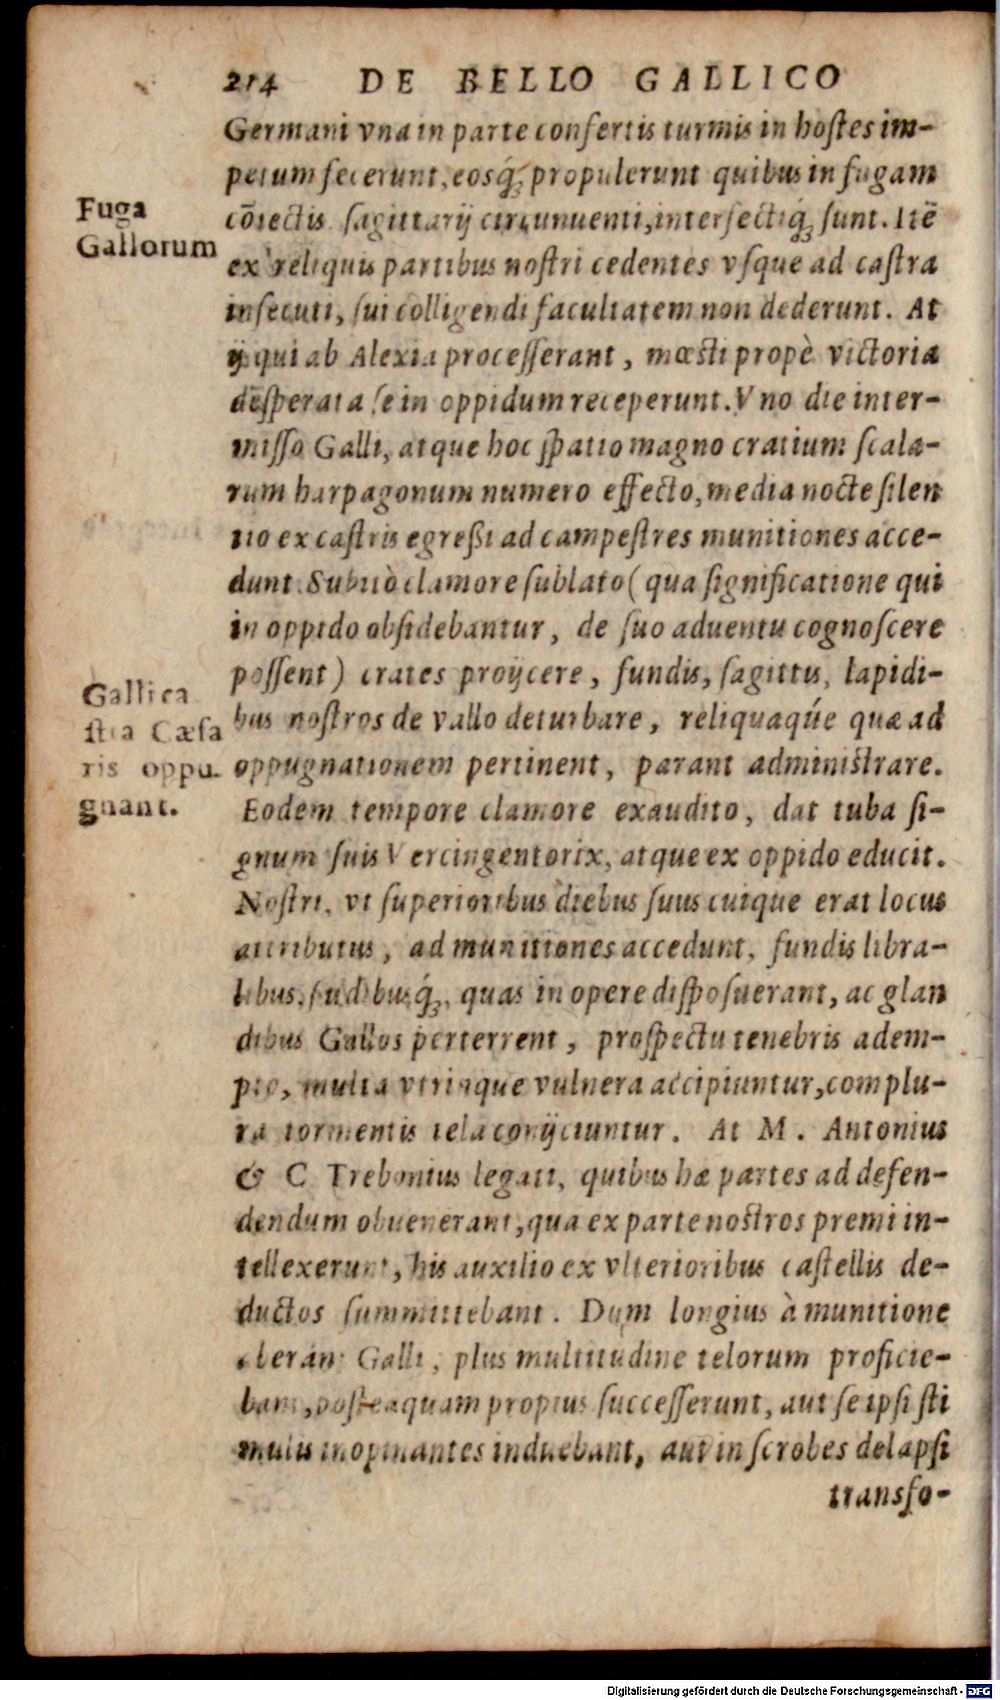 214 DE BELLO GALLICO
Germani vna in parte confertis turmis in hostes im-
petum fecerunt, eosq́; propulerunt quibus in fugam
cōiectis sagittarij circunuenti, interfectiq́; sunt. Itē
ex reliquis partibus nostri cedentes vsque ad castra
insecuti, sui colligendi facultatem non dederunt. At
ij qui ab Alexia processerant, mœsti propè victoria
desperata se in oppidum receperunt. Vno die inter-
misso Galli, atque hoc spatio magno cratium scala-
rum harpagonum numero effecto, media nocte silen
tio ex castris egreßi ad campestres munitiones acce-
dunt. Subitò clamore sublato (qua significatione qui
in oppido obsidebantur, de suo aduentu cognoscere
possent) crates proijcere, fundis, sagittis, lapidi-
bus nostros de vallo deturbare, reliquaqúe quæ ad
oppugnationem pertinent, parant administrare.
Eodem tempore clamore exaudito, dat tuba si-
gnum suis Vercingentorix, atque ex oppido educit.
Nostri, vt superioribus diebus suus cuique erat locus
attributus, ad munitiones accedunt, fundis libra-
libus, sudibusq́;, quas in opere disposuerant, ac glan
dibus Gallos perterrent, prospectu tenebris adem-
pto, multa vtrinque vulnera accipiuntur, complu-
ra tormentis tela conijciuntur. At M. Antonius
& C Trebonius legati, quibus hæ partes ad defen-
dendum obuenerant, qua ex parte nostros premi in-
tellexerunt, his auxilio ex vlterioribus castellis de-
ductos summittebant. Dum longius à munitione
aberant Galli, plus multitudine telorum proficie-
bant, posteaquam propius successerunt, aut se ipsi sti
mulis inopinantes induebant, aut in scrobes delapsi
transfo-
Fuga
Gallorum
Gallica
stra Cæsa
ris oppu-
gnant.
Digitalisierung gefördert durch die Deutsche Forschungsgemeinschaft - DFG